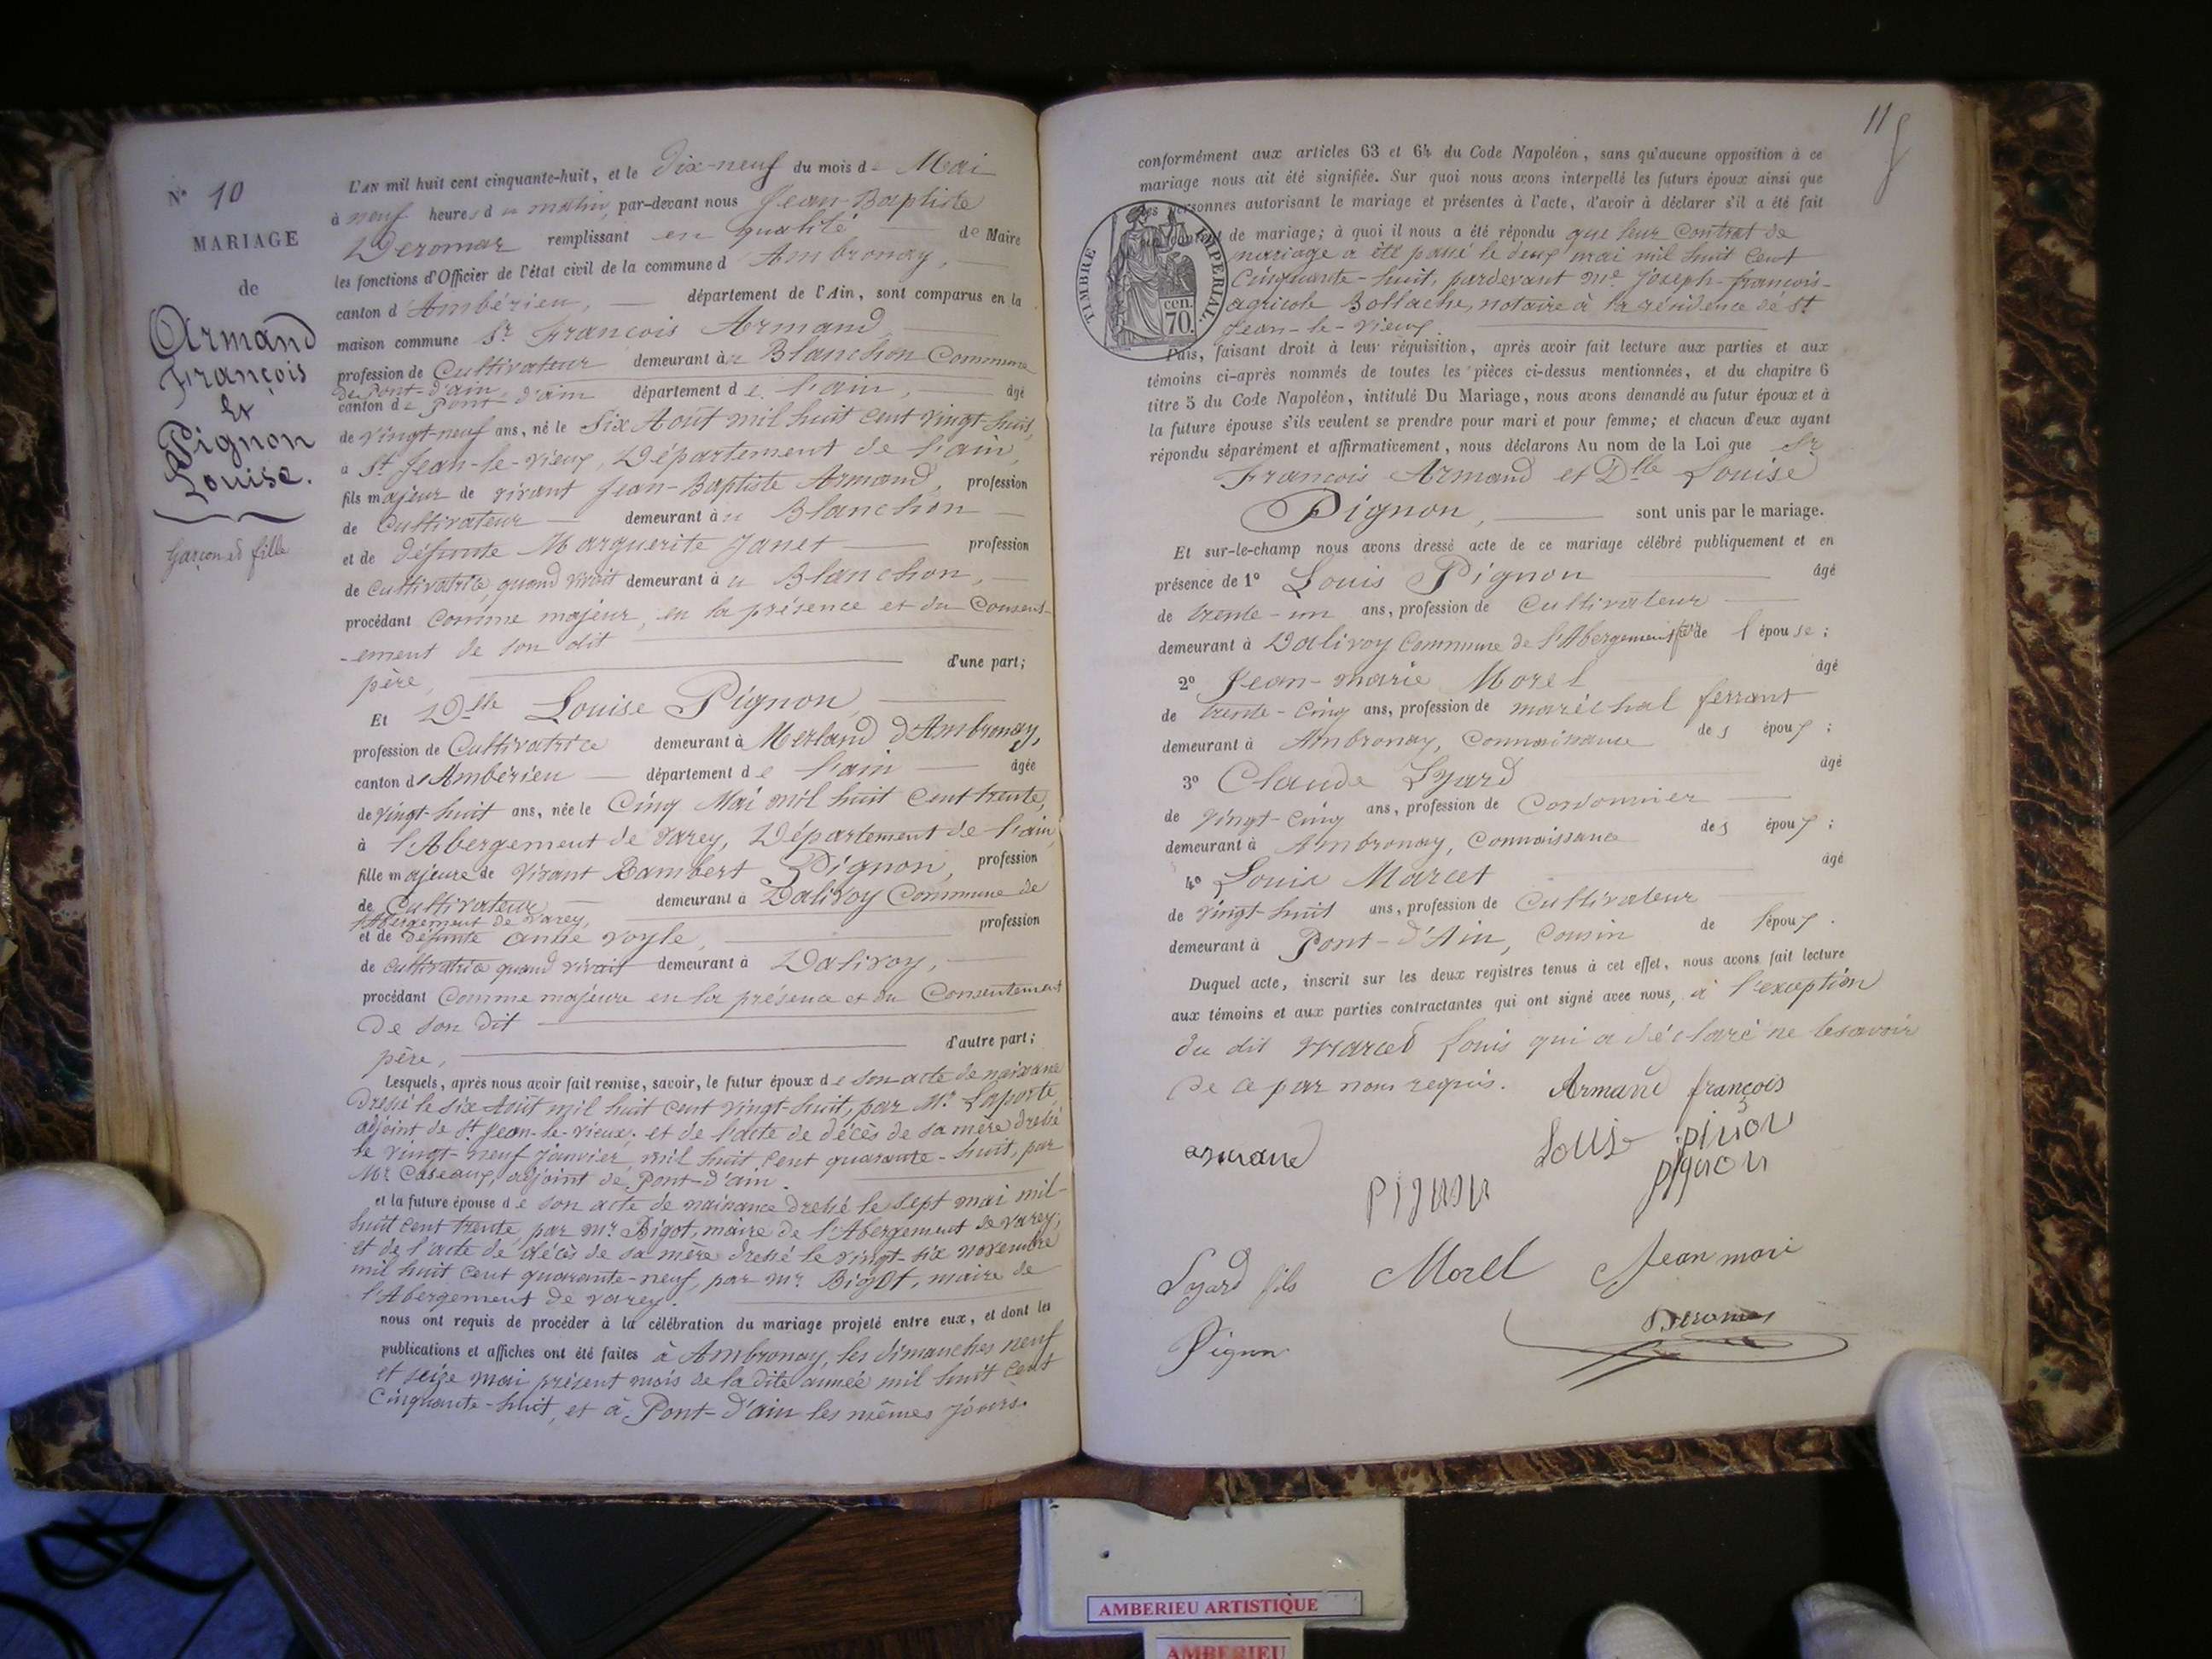 N° 10
MARIAGE
de
Armand
François
et
Pignon
Louise.
Garçon et fille
L'AN mil huit cent cinquante-huit, et le Dix-neuf du mois de Mai
à neuf heures du matin, par-devant nous Jean-Baptiste
Deromas remplissant en qualité de Maire
les fonctions d'Officier de l'état civil de la commune d'Ambronay,
canton d'Ambérieu, département de l'Ain, sont comparus en la
maison commune Sr François Armand
profession de Cultivateur demeurant à Blanchon Commune
de Pont-d'ain
canton de Pont-d'ain département de l'ain, âgé
de vingt-neuf ans, né le Six Août mil huit cent vingt-huit,
à St Jean-le-vieux, Département de l'ain,
fils majeur de vivant Jean-Baptiste Armand, profession
de Cultivateur demeurant à Blanchon
et de défunte Marguerite Janet profession
de Cultivatrice, quand vivait demeurant à Blanchon,
procédant comme majeur, en la présence et du Consent-
-ement de son dit
père, d'une part;
Et Dlle Louise Pignon,
profession de Cultivatrice demeurant à Merland d'Ambronay,
canton d'Ambérieu département de l'ain âgée
de vingt-huit ans, née le Cinq Mai mil huit Cent trente,
à l'Abergement de varey, Département de l'ain,
fille majeure de vivant Rambert Pignon, profession
de Cultivateur demeurant à Dalivoy Commune de
l'Abergement de varey,
et de défunte anne royle, profession
de cultivatrice quand vivait demeurant à Dalivoy,
procédant Comme majeure en la présence et du Consentement
De son dit
père, d'autre part;
Lesquels, après nous avoir fait remise, savoir, le futur époux de son acte de naissance
Dressé le six Août mil huit cent vingt-huit, par Mr Laporte,
adjoint de St Jean-le-vieux; et de l'acte de décès de sa mère dressé
le vingt-neuf Janvier mil huit Cent quarante-huit, par
Mr Caseaux, adjoint de Pont-d'ain.
et la future épouse de son acte de naissance dressé le sept mai mil-
huit cent trente par mr Bigot, maire de l'Abergement de varey;
et de l'acte de décès de sa mère dressé le vingt-six novembre
mil huit cent quarante-neuf, par mr Bigot, maire de
l'Abergement de varey.
nous ont requis de procéder à la célébration du mariage projeté entre eux, et dont les
publications et affiches ont été faites à Ambronay, les dimanches neuf
et seize mai présent mois de la dite année mil huit cent
Cinquante-huit, et à Pont-d'ain les mêmes jours.
11
conformément aux articles 63 et 64 du Code Napoléon, sans qu'aucune opposition à ce
mariage nous ait été signifiée. Sur quoi nous avons interpellé les futurs époux ainsi que
les personnes autorisant le mariage et présentes à l'acte, d'avoir à déclarer s'il a été fait
un contrat de mariage; à quoi il nous a été répondu que leur Contrat de
mariage a été passé le deux mai mil huit cent
Cinquante-huit, pardevant me Joseph-françois-
agricole Bollache, notaire à la résidence de St
Jean-le-vieux.
TIMBRE IMPERIAL
70 cen.
Puis, faisant droit à leur réquisition, après avoir fait lecture aux parties et aux
témoins ci-après nommés de toutes les pièces ci-dessus mentionnées, et du chapitre 6
titre 5 du Code Napoléon, intitulé Du Mariage, nous avons demandé au futur époux et à
la future épouse s'ils veulent se prendre pour mari et pour femme; et chacun d'eux ayant
répondu séparément et affirmativement, nous déclarons Au nom de la Loi que Sr
François Armand et Dlle Louise
Pignon, sont unis par le mariage.
Et sur-le-champ nous avons dressé acte de ce mariage célébré publiquement et en
présence de 1° Louis Pignon âgé
de trente-un ans, profession de Cultivateur
demeurant à Dalivoy Commune de l'Abergement de l'épouse;
2° Jean-marie Morel âgé
de trente-Cinq ans, profession de maréchal ferrant
demeurant à Ambronay, Connaissance des époux;
3° Claude Lyard âgé
de vingt-cinq ans, profession de Cordonnier
demeurant à Ambronay, Connaissance des époux;
4° Louis Marcet âgé
de vingt-huit ans, profession de Cultivateur
demeurant à Pont-d'Ain, Cousin de l'époux.
Duquel acte, inscrit sur les deux registres tenus à cet effet, nous avons fait lecture
aux témoins et aux parties contractantes qui ont signé avec nous, à l'exception
du dit Marcet Louis qui a déclaré ne le savoir
De ce par nous requis. Armand françois
armand Louis pinon
Pignon pignon
Lyard fils Morel Jean mari
Pignon Deromas
AMBERIEU ARTISTIQUE
AMBERIEU